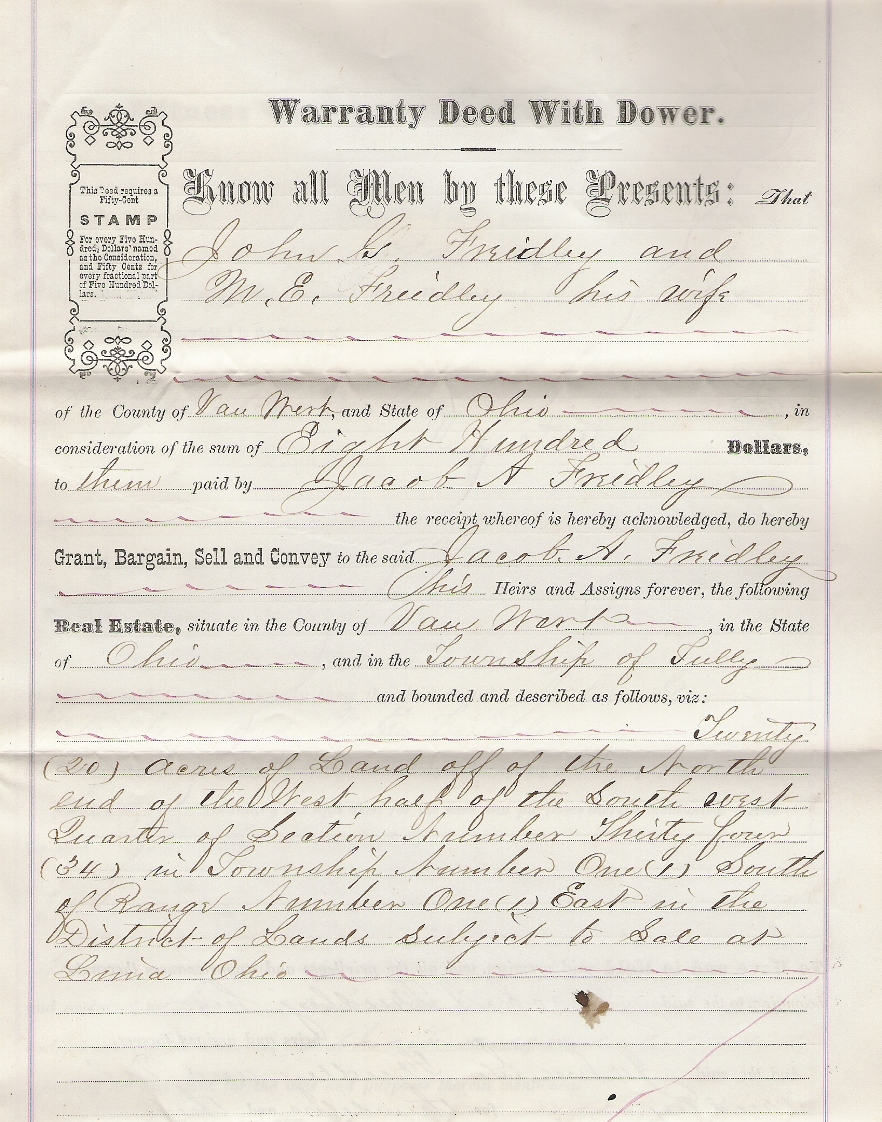 Warranty Deed With Dower.
This Deed requires a
Fifty-Cent
STAMP
For every Five Hun-
dred Dollars' named
as the Consideration,
and Fifty Cents for
every fractional part
of Five Hundred Dol-
lars.
Know all Men by these Presents: That
John G. Freidley and
M. E. Freidley his wife
of the County of Van Wert, and State of Ohio, in
consideration of the sum of Eight Hundred Dollars,
to them paid by Jacob A Freidley
the receipt whereof is hereby acknowledged, do hereby
Grant, Bargain, Sell and Convey to the said Jacob. A. Freidley
his Heirs and Assigns forever, the following
Real Estate, situate in the County of Van Wert, in the State
of Ohio, and in the Township of Tully
and bounded and described as follows, viz:
Twenty
(20) acres of Land off of the North
end of the West half of the South west
Quarter of Section Number Thirty four
(34) in Township Number One (1) South
of Range Number One (1) East in the
District of Lands subject to Sale at
Lima Ohio